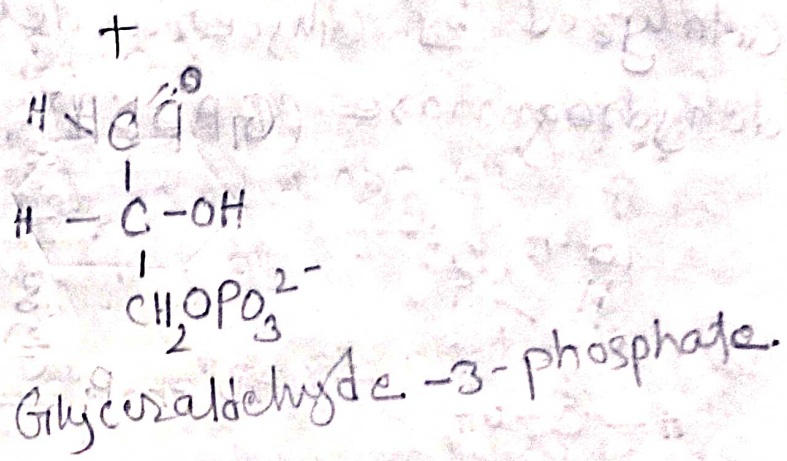 +
H C O
H - C - OH
CH₂OPO₃²⁻
Glyceraldehyde-3-phosphate.